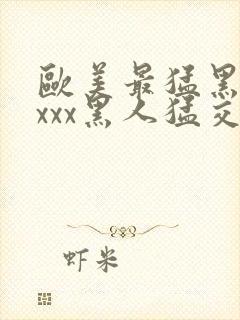 歐美最猛黑
xxx黑人猛交
虾米